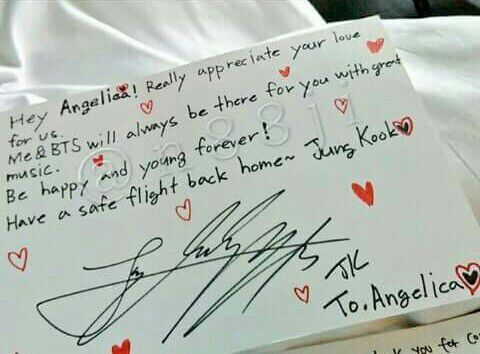 Hey Angelica! Really appreciate your love
for us.
Me&BTS will always be there for you with great
music.
Be happy and young forever!
Have a safe flight back home~ Jung Kook
JK
To. Angelica
@n88ji
you for